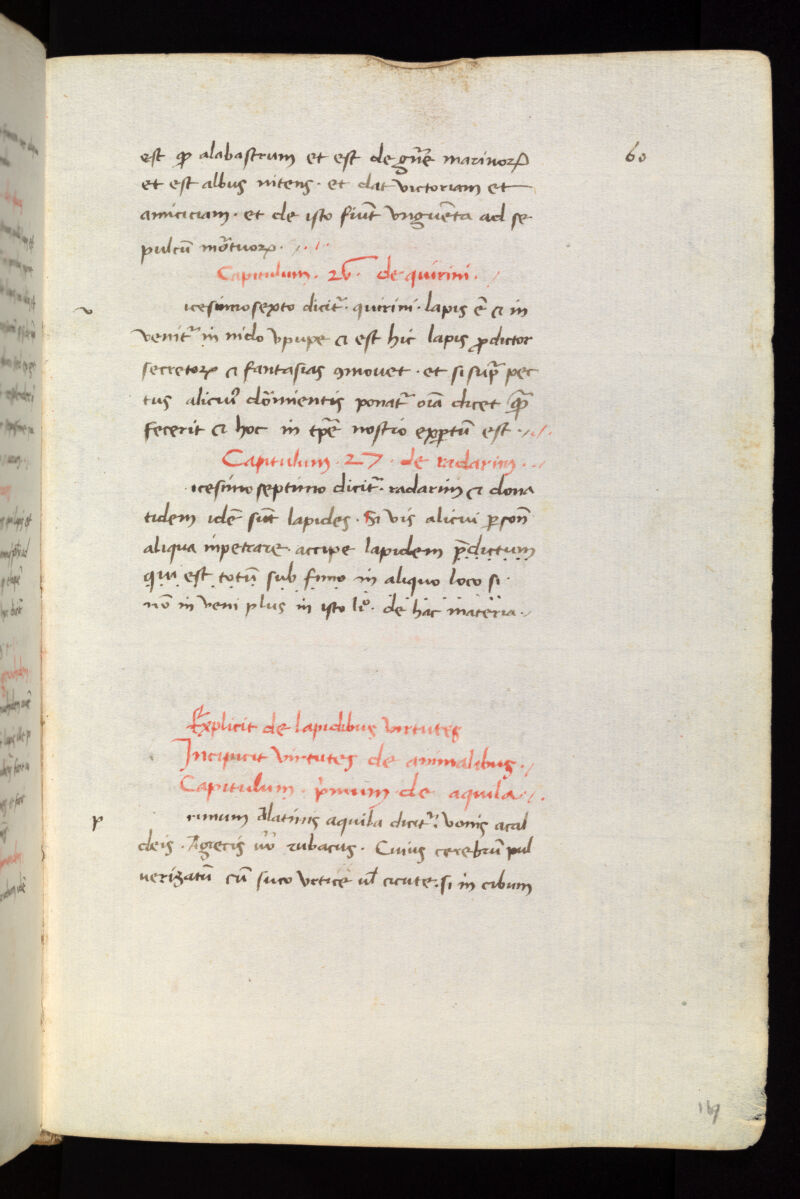 60
est qͥ alabastrum et est de gn̄e marinoꝝ
et est albus nitens · et dat victoriam et
amiciciam · et de isto fiūt vnguēta ad se
pulcū mōtuoꝝ ·
Capitulum · 26 · de quirini ·
v
icesimosexto dicit̄ · quirini · lapis ē & in
venit̄ in nido vpupe & est hic lapis ꝓdictor
secretoꝝ & fantasias ꝯmouet · et si supͣ pec
tus alicuiꝰ dōmientis ponat̄ oīa dicet q̄
fecerit & hoc in tp̄e nostro exp̱tū est ·
Capitulum · 27 · de radarim ·
icesimo septimo dicit̄ · radarim & dona
tidem idē sūt lapides · Si vis alicui
aliqua inpetrare · accipe lapidem p̄dictum
qui est totū sub fimo in aliquo loco si ·
nō in veni plus in isto liͦ · de hac materia ·
Explicit de lapidibus virtutes
Incipiūt virtutes de animalibus ·
Capitulum · pͥmum · de aquila ·
p
rimum Alatinis aquila dicit̄ · vonis acal
deis · Agrecis uͦo rubacus · Cuius cerebrū pul
uerizatū cū suco vrtice ul̄ cicute · si in cibum
167